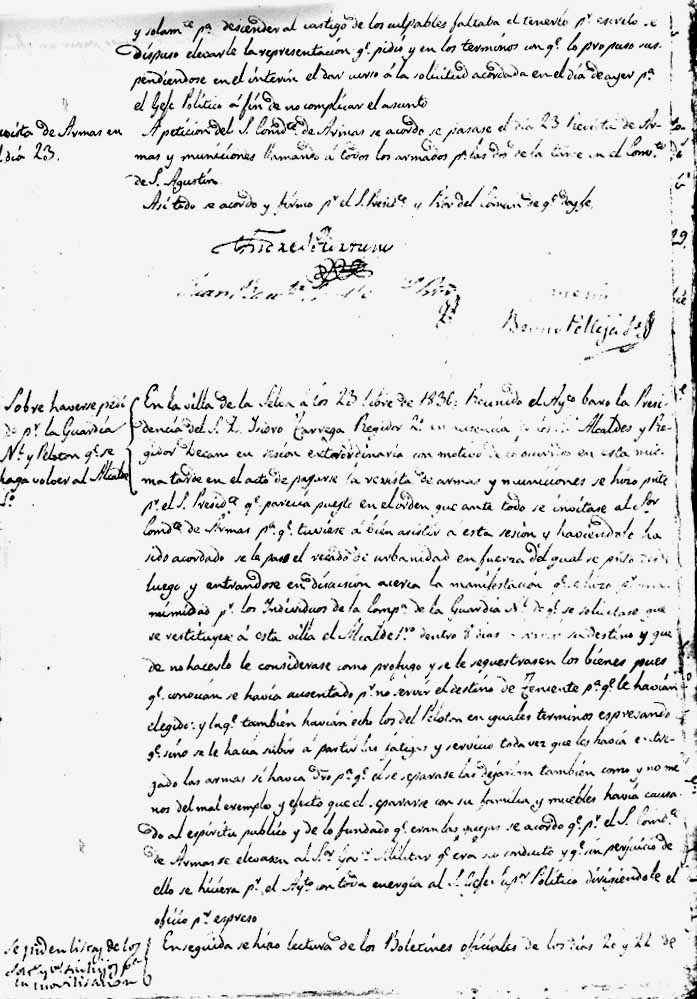 y solam.te p.a descender al castigo de los culpables faltaba el tenerlo p.r escrito se
dispuso elevarle la representacion q.e pidió y en los terminos con q.e lo propuso sus-
pendiendose en el interin el dar curso á la solicitud acordada en el dia de ayer p.a
el Gefe Político á fin de no complicar el asunto
Revista de Armas en
el dia 23.
A peticion del S. Comd.te de Armas se acordo se pasase el dia 23 Revista de Ar-
mas y municiones llamando á todos los armados p.a las dos de la tarde en el Conv.to
de S. Agustin.
Asi todo se acordo y firmo p.r el S. Presid.te y Sor del Comun de q.e doy fe.
Sobre haverse pedi
do p.r la Guardia
N.l y Peloton q.e se
haga volver al Alcalde
1.o
En la villa de la Selva á los 23 de 1836: Reunido el Ay.to baxo la Presi-
dencia del S. D. Isidro Tarrega Regidor 2.o en ausencia de los Alcaldes y Re-
gidor Decano en sesion extraordinaria con motivo de lo ocurrido en esta mis-
ma tarde en el acto de pasarse la revista de armas y municiones se hizo pnte
p.r el S. Presid.te q.e parecia puesto en el orden que ante todo se invitase al S.or
Comd.te de Armas p.a q.e tuviese á bien asistir á esta sesion y haviendole ha
sido acordado se le paso el recado de urbanidad en fuerza del qual se priso desde
luego y entrandose en discusion acerca la manifestacion q.e hizo p.r una-
nimidad p.r los Individuos de la Comp.a de la Guardia N.l de q.e se solicitase que
se restituyera á esta villa el Alcalde 1.ro dentro 8 dias su destino y que
de no hacerlo le considerase como profugo y se le sequestrasen los bienes pues
q.e conocian se havia ausentado p.r no servir el destino de Teniente p.a q.e le havian
elegido: y lo q.e tambien havian dcho los del Peloton en iguales terminos espresando
q.e sino se le hacia subir á partir las fatigas y servicio toda vez que les havia entre-
gado las armas si havia dro p.a q.e él se separase las dejarian tambien como y no me-
nos del mal exemplo y efecto que el separarse con su familia y muebles havia causa-
do al espiritu publico y de lo fundado q.e eran las quejas se acordo q.e p.r el S. Comd.te
de Armas se elevasen al S.or Gov.r Militar q.e era su conducto y q.e sin perjuicio de
ello se hiciera p.r el Ay.to con toda energia al S. Gefe Sup.r Politico dirigiendole el
oficio p.r espreso
Se piden listas de los
En seguida se hizo lectura de los Boletines oficiales de los dias 20 y 22 de